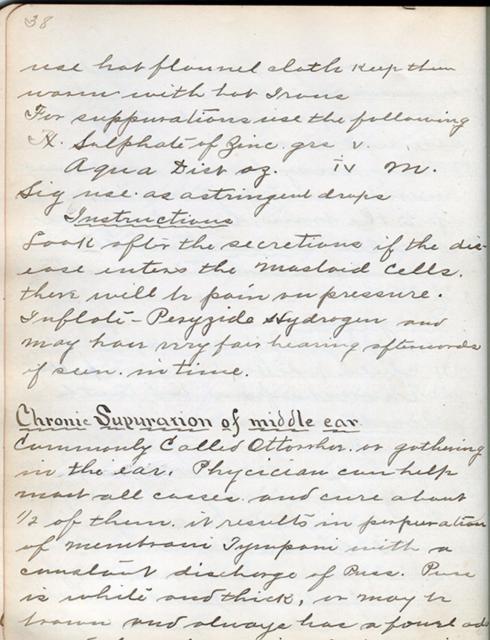 38
use hot flannel cloth keep them
warm with hot Irons
For suppurations use the following
℞. Sulphate of Zinc. grs v.
Aqua Dist oz. iv M.
Sig use as astringent drops
Instructions
Look after the secretions if the dis-
ease enters the Mastoid Cells.
there will be pain on pressure.
Inflate - Peryzide Hydrogen and
may have very fair hearing afterwards
if seen in time.
Chronic Supuration of middle ear
Commonly Called Ottorrher. or gathering
in the ear. Phycician can help
most all casses and cure about
1/2 of them. it results in perpuration
of membrani Tympani with a
constant discharge of Puss. Puss
is white and thick, or may be
brown and always has a fourl